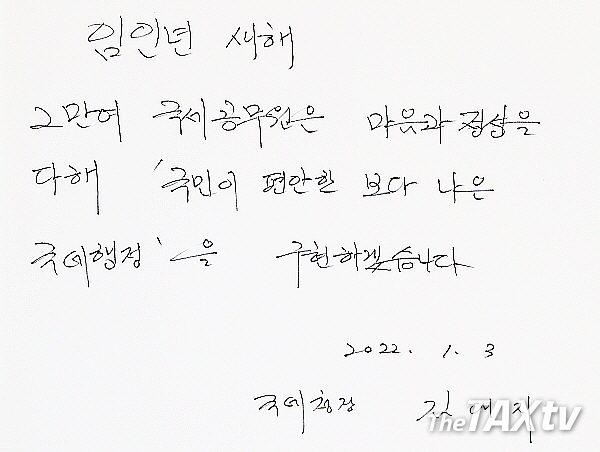 임인년 새해
2만여 국세공무원은 마음과 정성을
다해 '국민이 편안한 보다 나은
국세행정'을 구현하겠습니다
2022. 1. 3
국세청장 김대지
The TAXtv